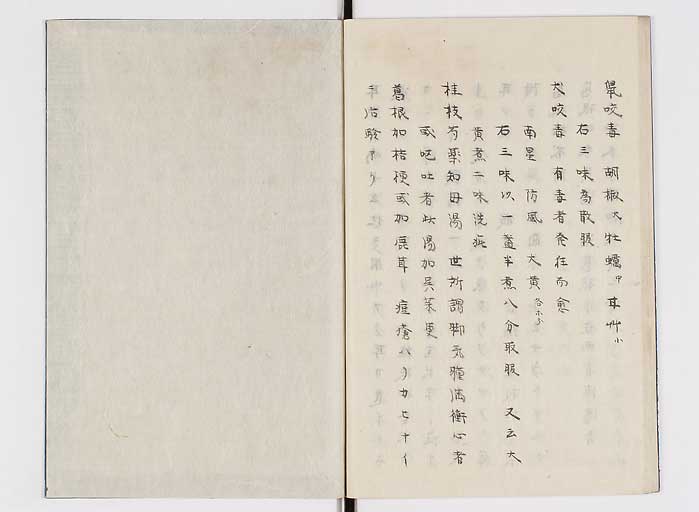 鼠咬毒 胡椒大 牡蠣中 甘艸小
右三味為散服
犬咬毒 有毒者発狂而愈
南星 防風 大黄各等分
右三味以一盞半煮八分取服 又云大
黄煮二味洗疵
桂枝芍薬知母湯 世所謂脚気腫満衝心者
或吃吐者此湯加呉茱萸
葛根加桔梗或加鹿茸 痘瘡ハリカ七十イ
手治験アリ